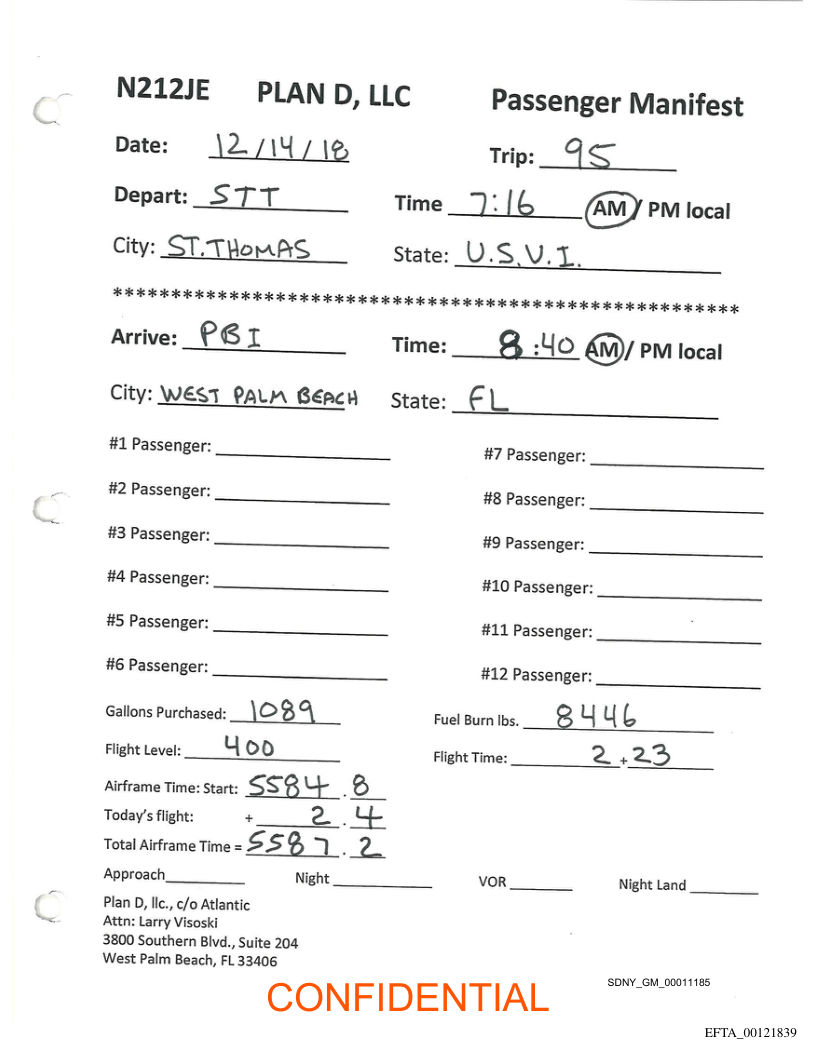 N212JE PLAN D, LLC Passenger Manifest
Date: 12/14/18 Trip: 95
Depart: STT Time 7:16 AM / PM local
City: ST. THOMAS State: U.S.V.I.
******************************************************
Arrive: PBI Time: 8:40 AM / PM local
City: WEST PALM BEACH State: FL
#1 Passenger: #7 Passenger:
#2 Passenger: #8 Passenger:
#3 Passenger: #9 Passenger:
#4 Passenger: #10 Passenger:
#5 Passenger: #11 Passenger:
#6 Passenger: #12 Passenger:
Gallons Purchased: 1089 Fuel Burn lbs. 8446
Flight Level: 400 Flight Time: 2 + 23
Airframe Time: Start: 5584.8
Today's flight: + 2.4
Total Airframe Time = 5587.2
Approach Night VOR Night Land
Plan D, llc., c/o Atlantic
Attn: Larry Visoski
3800 Southern Blvd., Suite 204
West Palm Beach, FL 33406
SDNY_GM_00011185
CONFIDENTIAL
EFTA_00121839